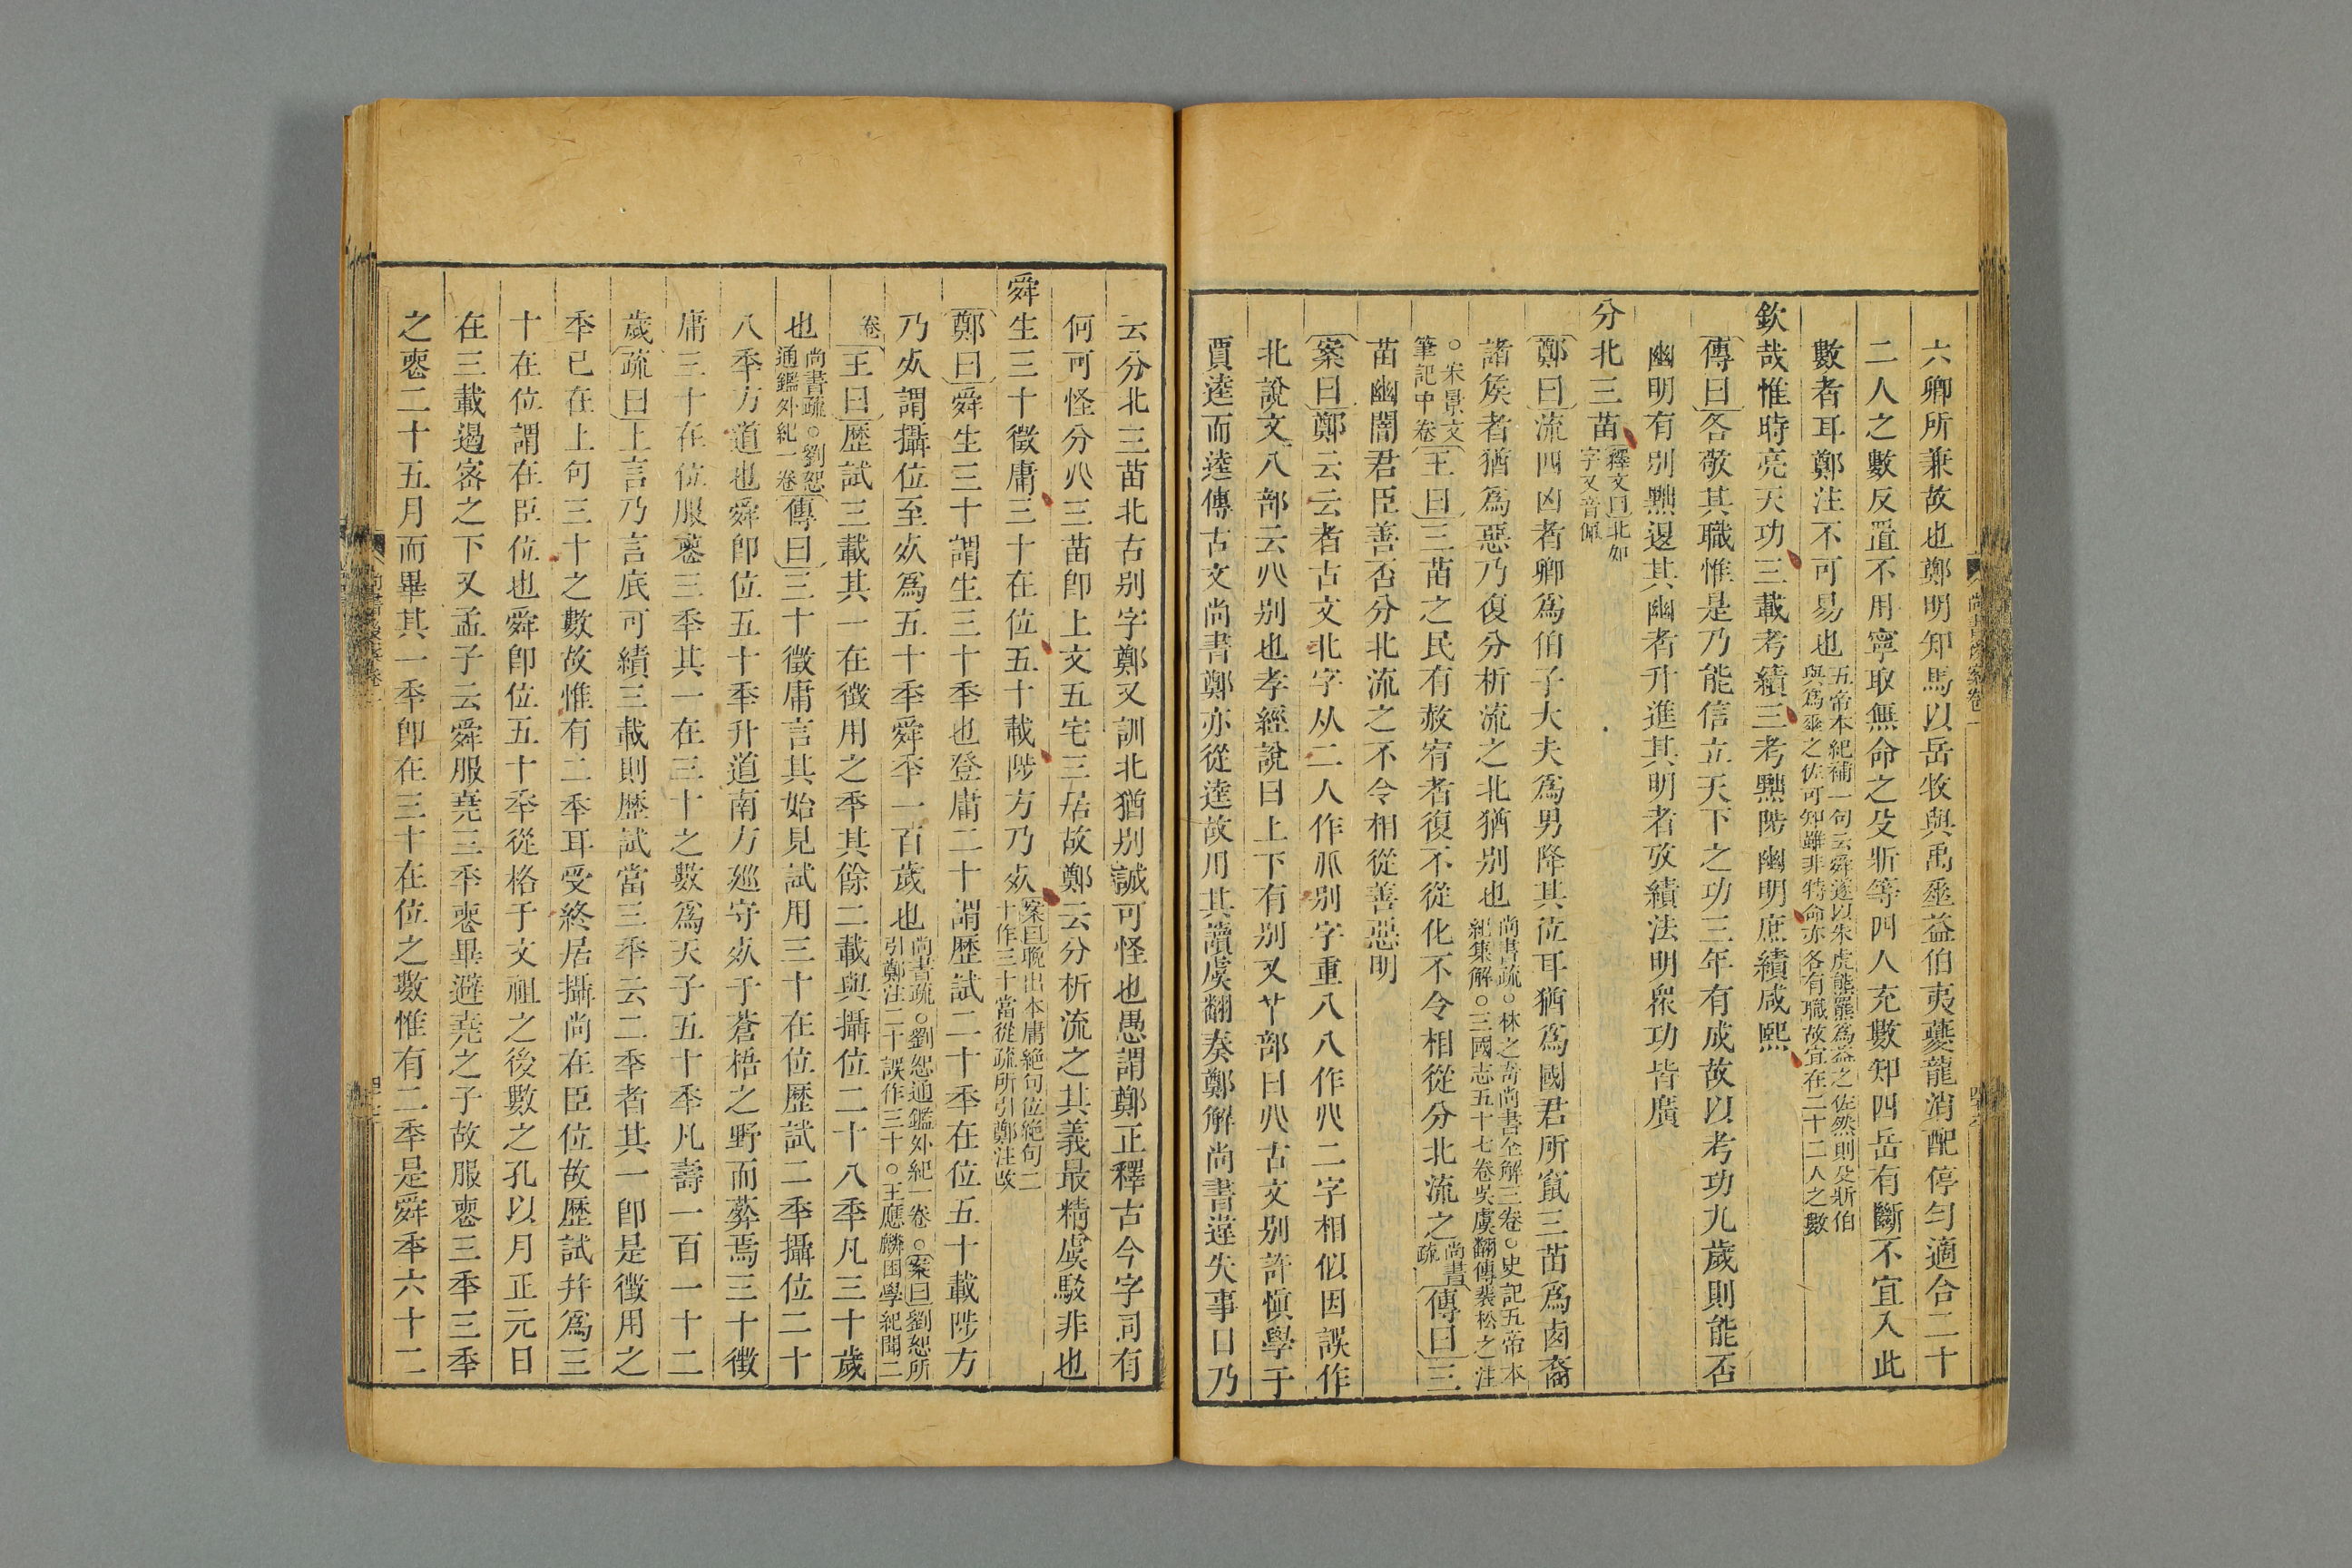 六卿所兼故也鄭明知馬以岳牧與禹垂益伯夷夔龍消配停勻適合二十
二人之數反置不用寧取無命之殳斨等四人充數知四岳有斷不宜入此
數者耳鄭注不可易也五帝本紀補一句云舜遂以朱虎熊羆為益之佐然則殳斨伯
與為垂之佐可知雖非特命亦各有職故宜在二十二人之數
欽哉惟時亮天功三載考績三考黜陟幽明庶績咸熙
傳曰各敬其職惟是乃能信立天下之功三年有成故以考功九歲則能否
幽明有別黜退其幽者升進其明者攷績法明衆功皆廣
分北三苗釋文曰北如
字又音佩
鄭曰流四凶者卿爲伯子大夫爲男降其位耳猶爲國君所竄三苗爲卤裔
諸矦者猶爲惡乃復分析流之北猶別也尚書疏○林之奇尚書全解三卷○史記五帝本
紀集解○三國志五十七卷吳虞翻傳裴松之注
○宋景文
筆記中卷王曰三苗之民有赦宥者復不從化不令相從分北流之尚書
疏傳曰三
苗幽闇君臣善否分北流之不令相從善惡明
案曰鄭云云者古文北字从二人作𠀤別字重八八作𠔁二字相似因誤作
北說文八部云𠔁別也孝經說曰上下有別又𠁥部曰𠔁古文別許愼學于
賈逵而逵傳古文尚書鄭亦從逵故用其讀虞翻奏鄭解尚書違失事日乃
云分北三苗北古别字鄭又訓北猶别誠可怪也愚謂鄭正釋古今字同有
何可怪分𠔁三苗卽上文五宅三居故鄭云分析流之其義最精虞駮非也
舜生三十徵庸三十在位五十載陟方乃𣦸案曰晚出本庸絶句位絶句二
十作三十當從疏所引鄭注改
鄭曰舜生三十謂生三十秊也登庸二十謂歷試二十秊在位五十載陟方
乃𣦸謂攝位至𣦸爲五十秊舜秊一百歲也尚書疏○劉恕通鑑外紀一卷○案曰劉恕所
引鄭注二十誤作三十○王應麟困學紀聞二
卷王曰歷試三載其一在徵用之秊其餘二載與攝位二十八秊凡三十歲
也尚書疏○劉恕
通鑑外紀一卷傳曰三十徵庸言其始見試用三十在位歷試二秊攝位二十
八秊方道也舜卽位五十秊升道南方廵守𣦸于蒼梧之野而葬焉三十徵
庸三十在位服䘮三秊其一在三十之數爲天子五十秊凡壽一百一十二
歲疏曰上言乃言底可績三載則歷試當三秊云二秊者其一卽是徵用之
秊已在上句三十之數故惟有二秊耳受終居攝尚在臣位故歷試幷爲三
十在位謂在臣位也舜卽位五十秊從格于文祖之後數之孔以月正元日
在三載遏密之下又孟子云舜服堯三秊䘮畢避堯之子故服䘮三秊三秊
之䘮二十五月而畢其一秊卽在三十在位之數惟有二秊是舜秊六十二